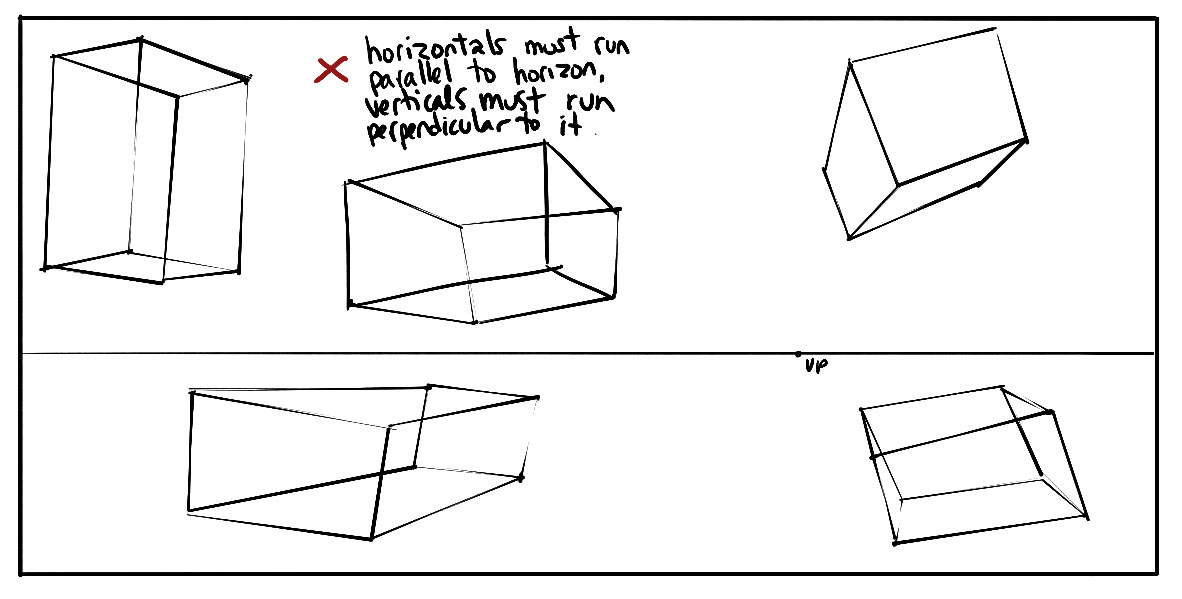 horizontals must run
parallel to horizon,
verticals must run
perpendicular to it.
VP